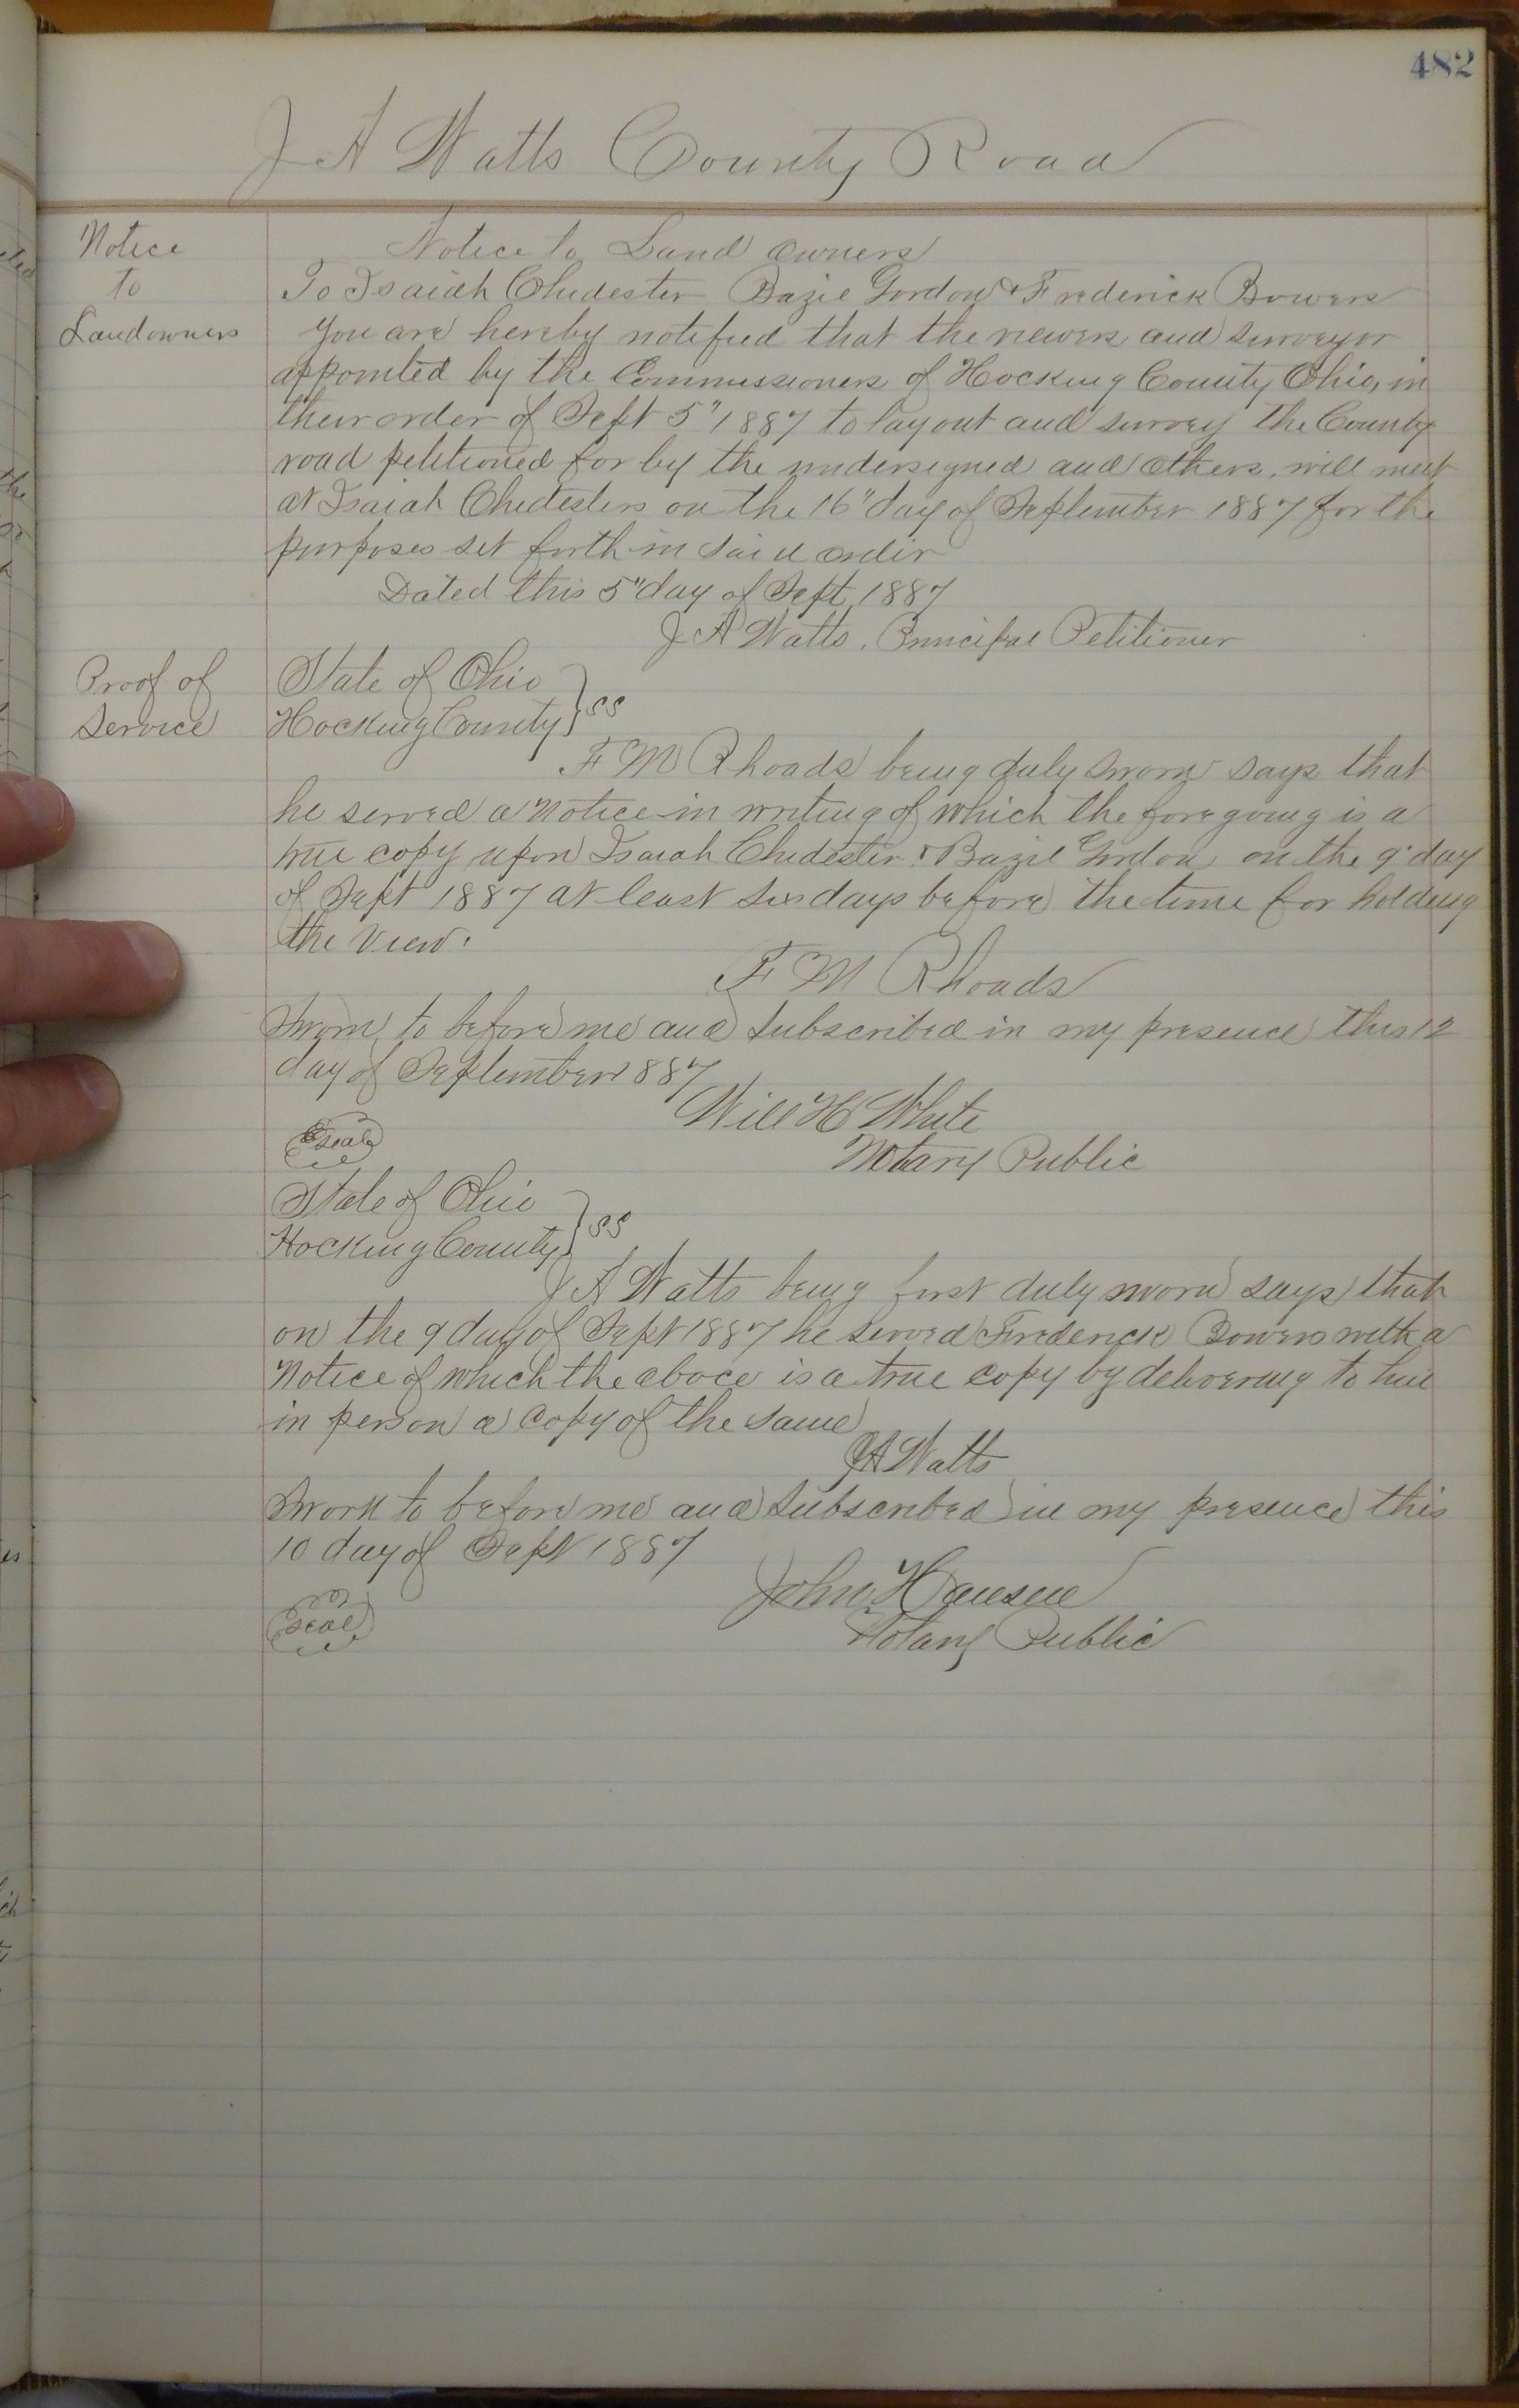 482
J A Watts County Road
Notice
to
Landowners
Notice to Land owners
To Isaiah Chidester Bazil Gordon & Frederick Bowers
You are hereby notified that the viewers and surveyor
appointed by the Commissioners of Hocking County Ohio, in
their order of Sept 5" 1887 to lay out and survey the County
road petitioned for by the undersigned and others, will meet
at Isaiah Chidesters on the 16" day of September 1887 for the
purposes set forth in said order
Dated this 5" day of Sept 1887
J A Watts, Principal Petitioner
Proof of
Service
State of Ohio
Hocking County } SS
F M Rhoads being duly sworn says that
he served a Notice in writing of which the foregoing is a
true copy upon Isaiah Chidester & Bazil Gordon on the 9" day
of Sept 1887 at least six days before the time for holding
the View.
F M Rhoads
Sworn to before me and subscribed in my presence this 12
day of September 1887
Will H White
Notary Public
Seal
State of Ohio
Hocking County } SS
J A Watts being first duly sworn says that
on the 9 day of Sept 1887 he served Frederick Bowers with a
Notice of which the above is a true copy by delivering to him
in person a copy of the same
J A Watts
Sworn to before me and subscribed in my presence this
10 day of Sept 1887
John Hansen
Notary Public
Seal